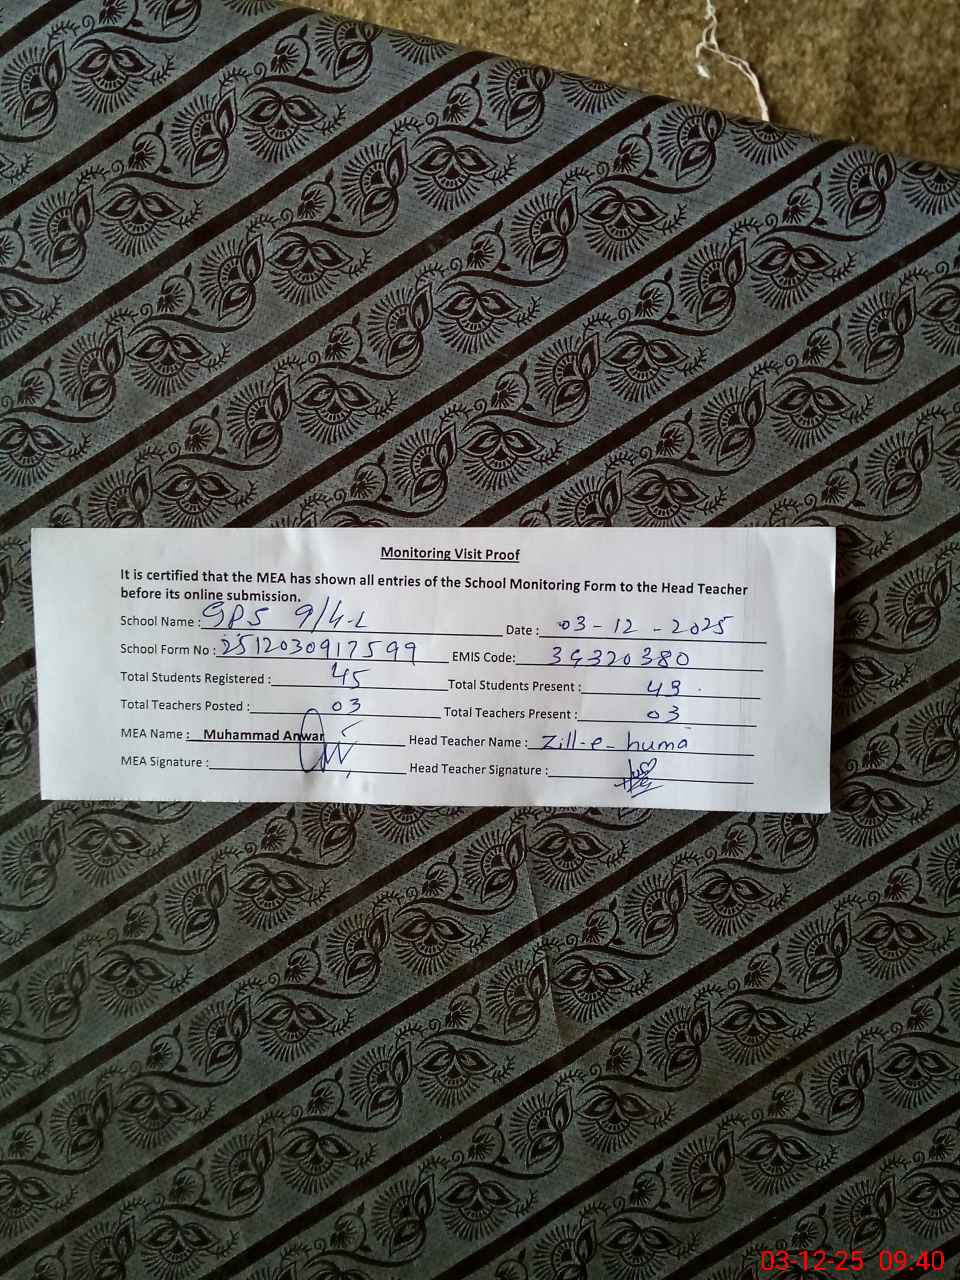 Monitoring Visit Proof
It is certified that the MEA has shown all entries of the School Monitoring Form to the Head Teacher
before its online submission.
School Name : GPS 9/4-L Date : 03-12-2025
School Form No : 251203091 7599 EMIS Code: 39320380
Total Students Registered : 45 Total Students Present : 43
Total Teachers Posted : 03 Total Teachers Present : 03
MEA Name : Muhammad Anwar Head Teacher Name : Zill-e-huma
MEA Signature : Head Teacher Signature :
03-12-25 09:40